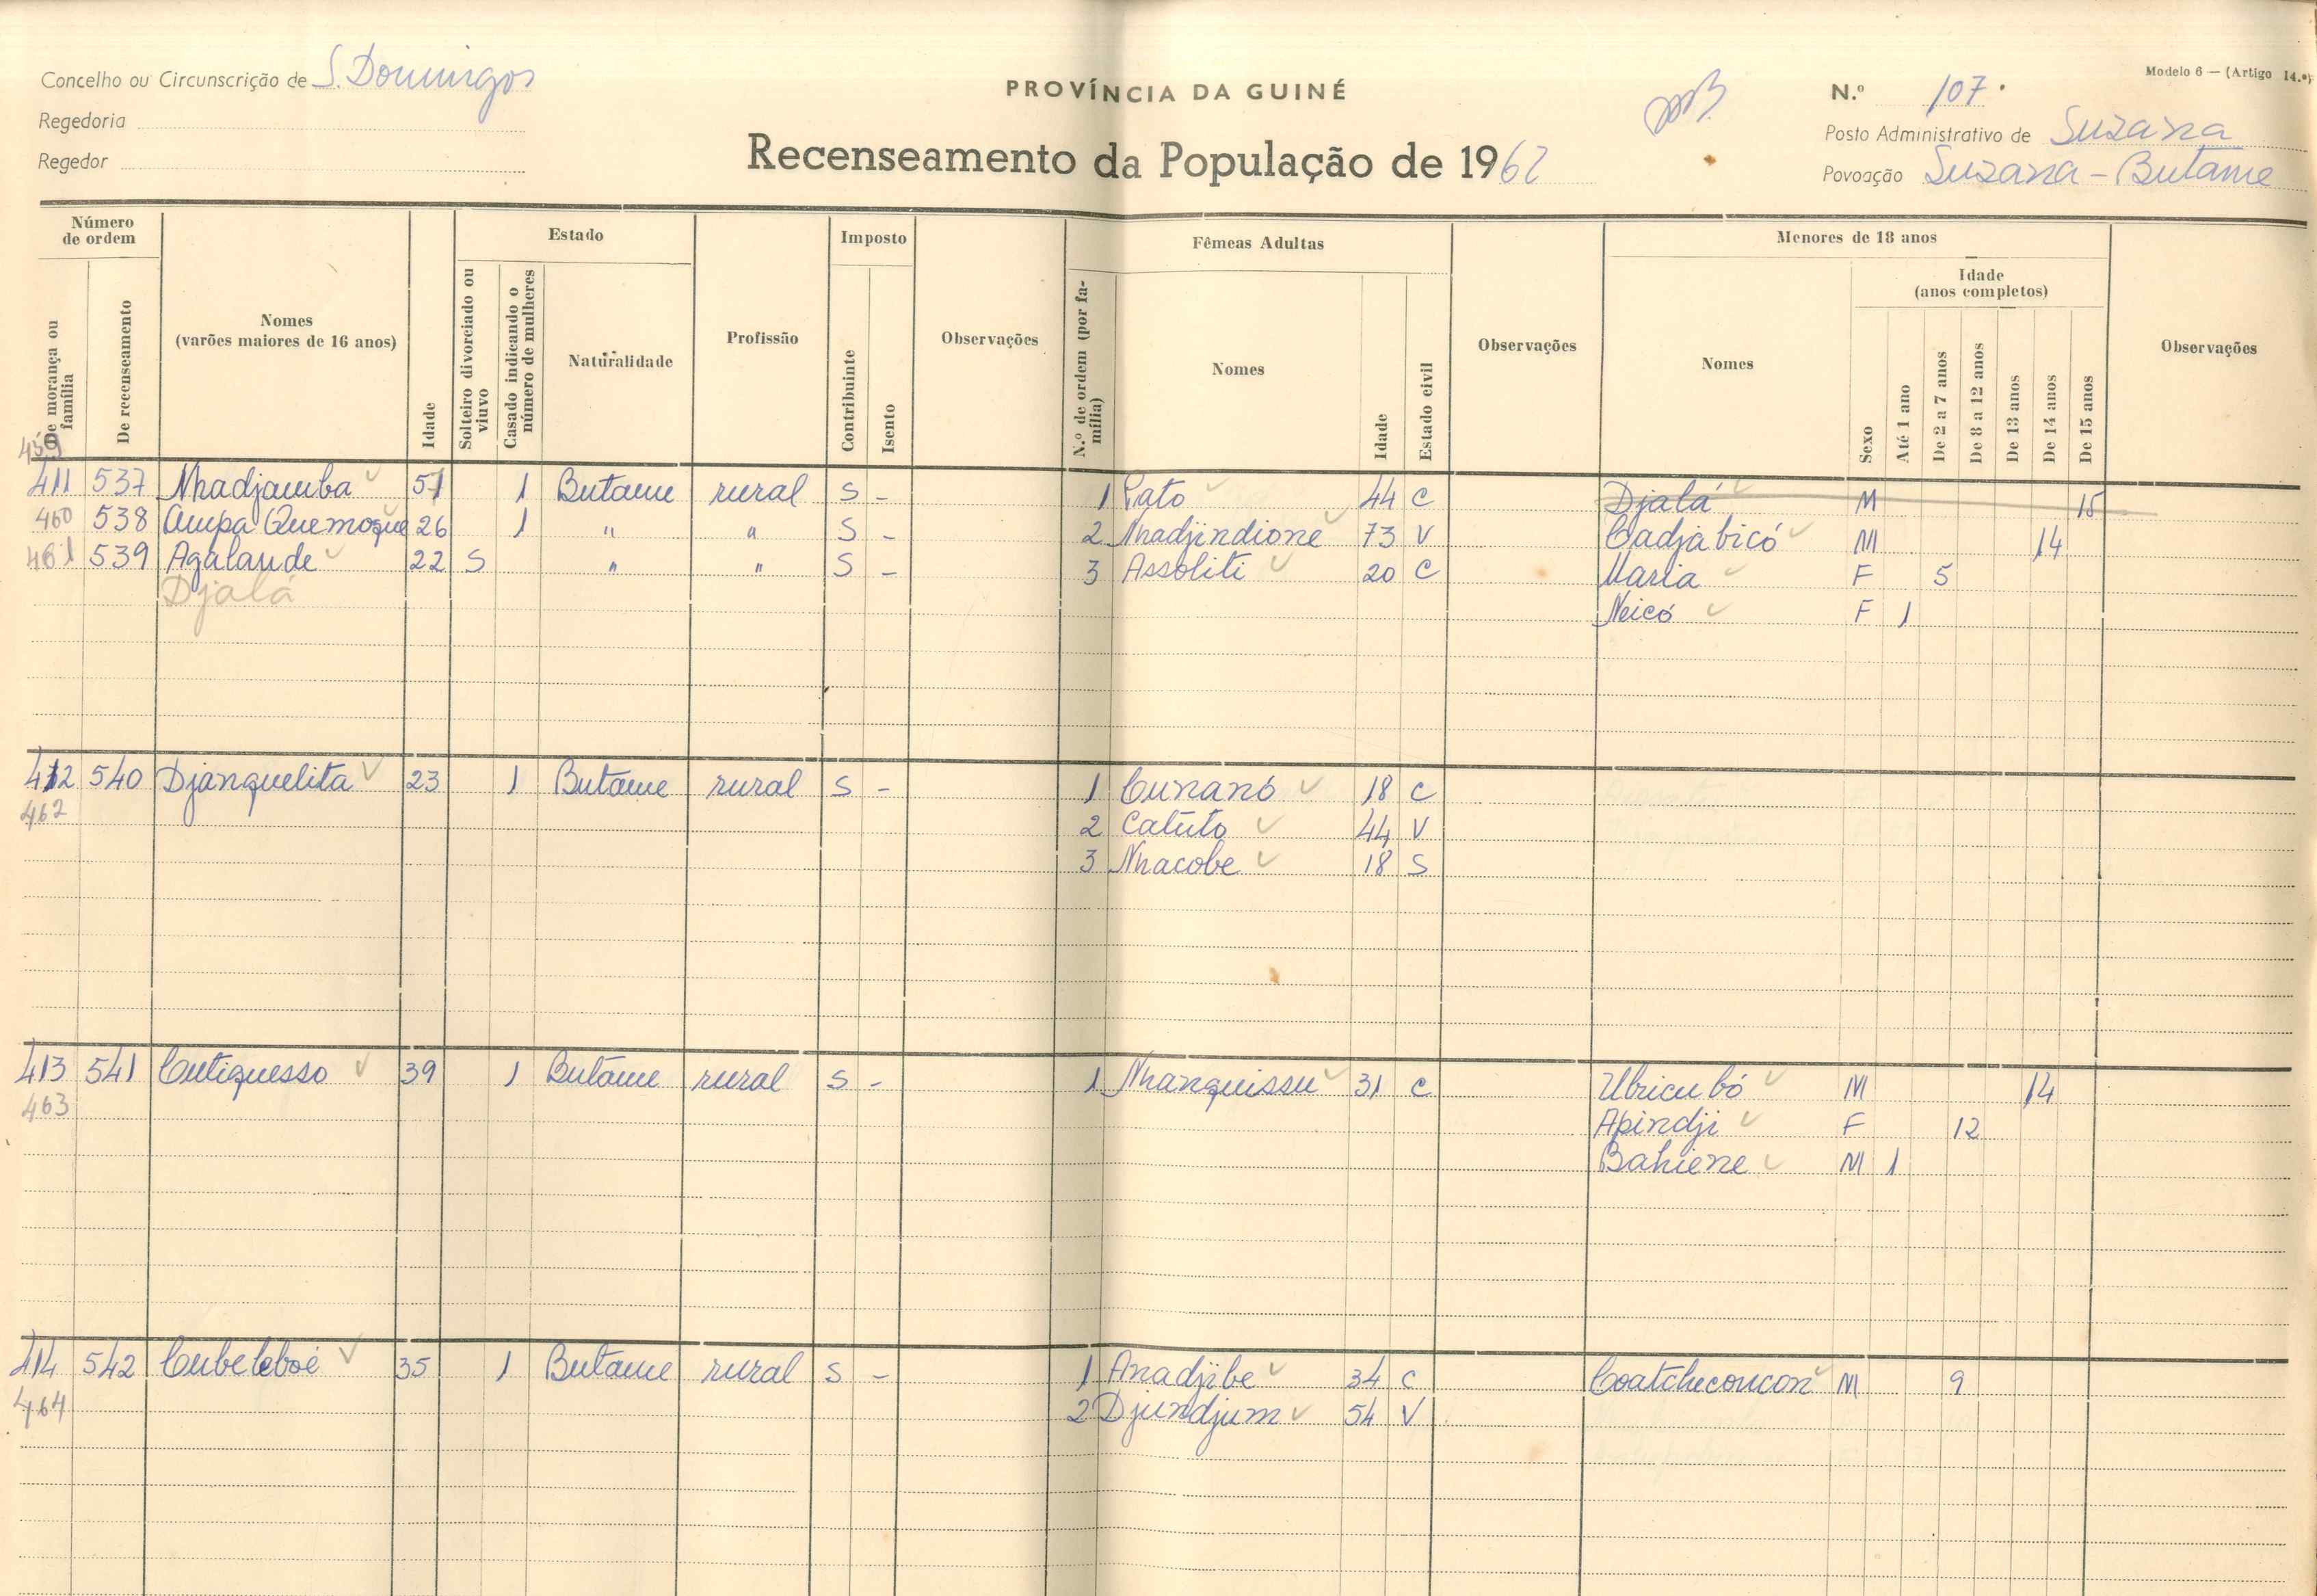 Concelho ou Circunscrição de S. Domingos
Regedoria
Regedor
PROVÍNCIA DA GUINÉ
Recenseamento da População de 1962
Modelo 6 — (Artigo 14.º)
N.º 107.
Posto Administrativo de Suzana
Povoação Suzana - Butame
Número de ordem
De morança ou família
De recenseamento
Nomes (varões maiores de 16 anos)
Idade
Estado
Solteiro divorciado ou viuvo
Casado indicando o número de mulheres
Naturalidade
Profissão
Imposto
Contribuinte
Isento
Observações
Fêmeas Adultas
N.º de ordem (por família)
Nomes
Idade
Estado civil
Observações
Menores de 18 anos
Nomes
Sexo
Idade (anos completos)
Até 1 ano
De 2 a 7 anos
De 8 a 12 anos
De 13 anos
De 14 anos
De 15 anos
Observações
459
411 537 Nhadjamba 51 1 Butame rural S - 1 Pato 44 C Djalá M 15
460 538 Ampa Quemoque 26 1 " " S - 2 Nhadjindione 73 V Cadjabicó M 14
461 539 Agalande 22 S " " S - 3 Assoliti 20 C Maria F 5
Djalá Neicó F 1
412 540 Djanquelita 23 1 Butame rural S - 1 Cunanó 18 C
462 2 Catúto 44 V
3 Nhacobe 18 S
413 541 Cutiquesso 39 1 Butame rural S - 1 Nhanquissu 31 C Ubricubó M 14
463 Apindji F 12
Bahiene M 1
414 542 Cubeleboé 35 1 Butame rural S - 1 Anadjibe 34 C Coatcheconcon M 9
464 2 Djundjum 54 V